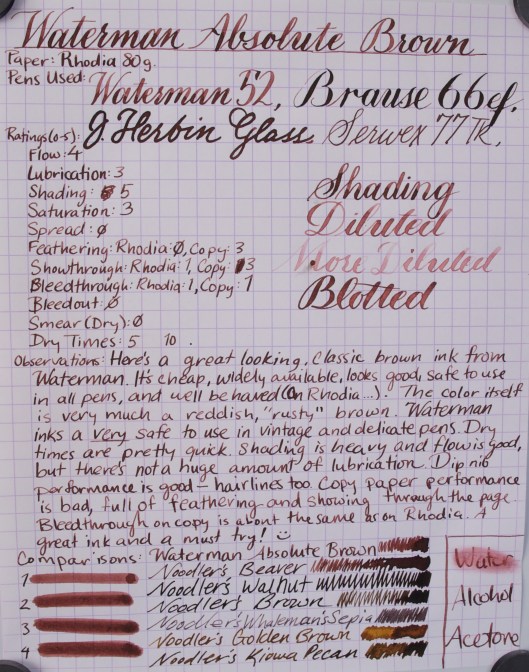 Waterman Absolute Brown
Paper: Rhodia 80g.
Pens Used: Waterman 52, Brause 66ef.
J. Herbin Glass. Serwex 77TR.
Ratings (0-5):
Flow: 4
Lubrication: 3
Shading: 5
Saturation: 3
Spread: 0
Feathering: Rhodia: 0, Copy: 3
Showthrough: Rhodia: 1, Copy: 3
Bleedthrough: Rhodia: 1, Copy: 1
Bleedout: 0
Smear (Dry): 0
Dry Times: 5 10 .
Shading
Diluted
More Diluted
Blotted
Observations: Here's a great looking, classic brown ink from
Waterman. It's cheap, widely available, looks good, safe to use
in all pens, and well behaved (On Rhodia...). The color itself
is very much a reddish, "rusty" brown. Waterman
inks a very safe to use in vintage and delicate pens. Dry
times are pretty quick. Shading is heavy and flow is good,
but there's not a huge amount of lubrication. Dip nib
performance is good - hairlines too. Copy paper performance
is bad, full of feathering and showing through the page.
Bleedthrough on copy is about the same as on Rhodia. A
great ink and a must try! :)
Comparisons: Waterman Absolute Brown
Noodler's Beaver
Noodler's Walnut
Noodler's Brown
Noodler's Whaleman's Sepia
Noodler's Golden Brown
Noodler's Kiowa Pecan
1
2
3
4
Water
Alcohol
Acetone